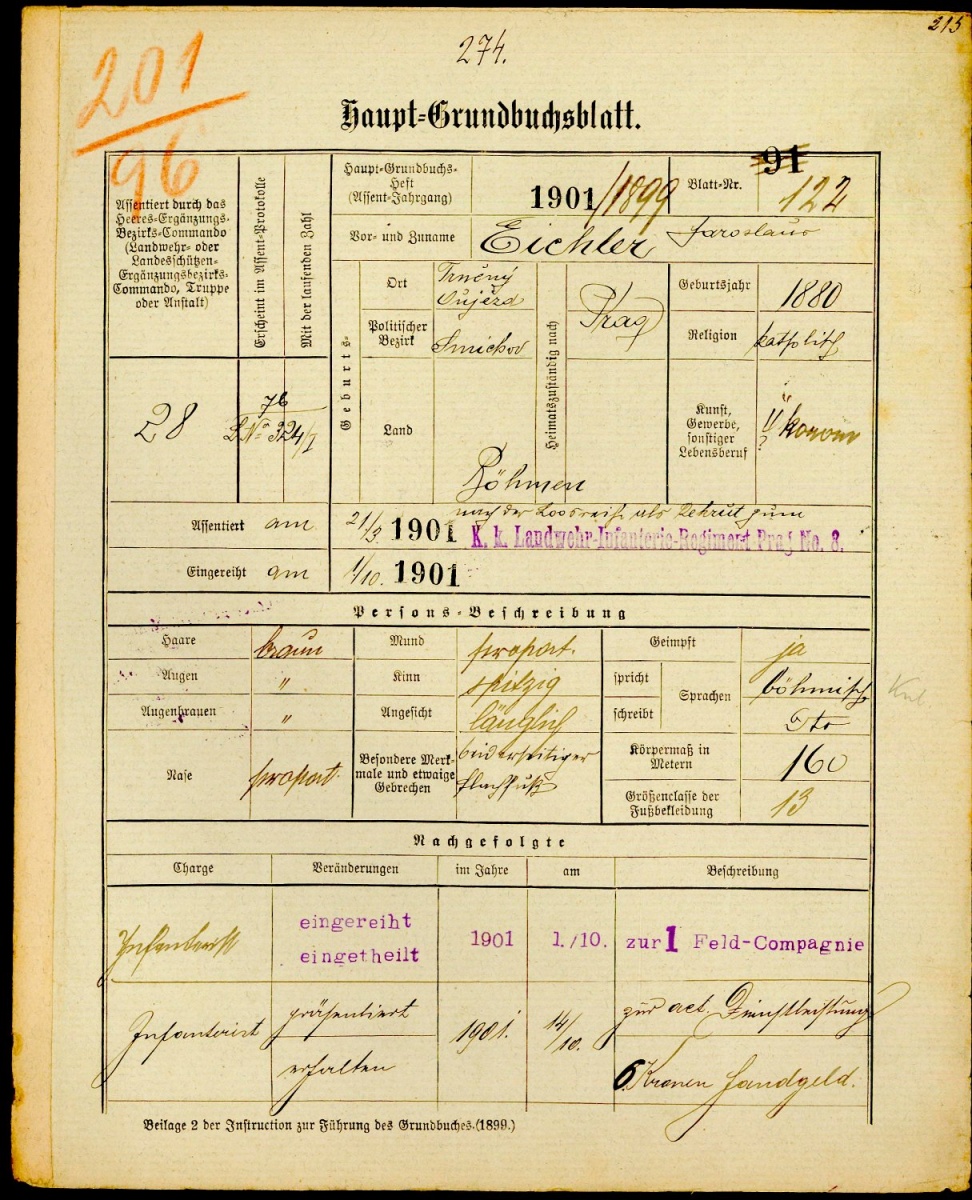 215
274.
201
96
Haupt-Grundbuchsblatt.
Assentiert durch das
Heeres-Ergänzungs-
Bezirks-Commando
(Landwehr- oder
Landesschützen-
Ergänzungsbezirks-
Commando, Truppe
oder Anstalt)
Erscheint im Assent-Protokolle
Mit der laufenden Zahl
Haupt-Grundbuchs-
Heft
(Assent-Jahrgang)
1901/1899
Blatt-Nr.
91
122
Vor- und Zuname
Eichler Jaroslaus
Geburts-
Ort
Aujezd
Politischer
Bezirk
Smichov
Land
Böhmen
Heimatszuständig nach
Prag
Geburtsjahr
1880
Religion
katholisch
Kunst,
Gewerbe,
sonstiger
Lebensberuf
28
76
324/I
Assentiert am
21/3 1901
nach der Losreihe als Rekrut zum
K. k. Landwehr-Infanterie-Regiment Prag No. 8.
Eingereiht am
1/10. 1901
Persons-Beschreibung
Haare
braun
Mund
proport.
Geimpft
ja
Augen
"
Kinn
spitzig
spricht
Sprachen
böhmisch
Augenbrauen
"
Angesicht
länglich
schreibt
Dto
Nase
proport.
Besondere Merk-
male und etwaige
Gebrechen
beiderseitiger
Plachfuß
Körpermaß in
Metern
160
Größenclasse der
Fußbekleidung
13
Nachgefolgte
Charge
Veränderungen
im Jahre
am
Beschreibung
Infanterist
eingereiht
eingetheilt
1901
1./10.
zur 1 Feld-Compagnie
Infanterist
präsentiert
1901.
14/10.
zur act. Dienstleistung
erhalten
6 Kronen Handgeld.
Beilage 2 der Instruction zur Führung des Grundbuches.(1899.)